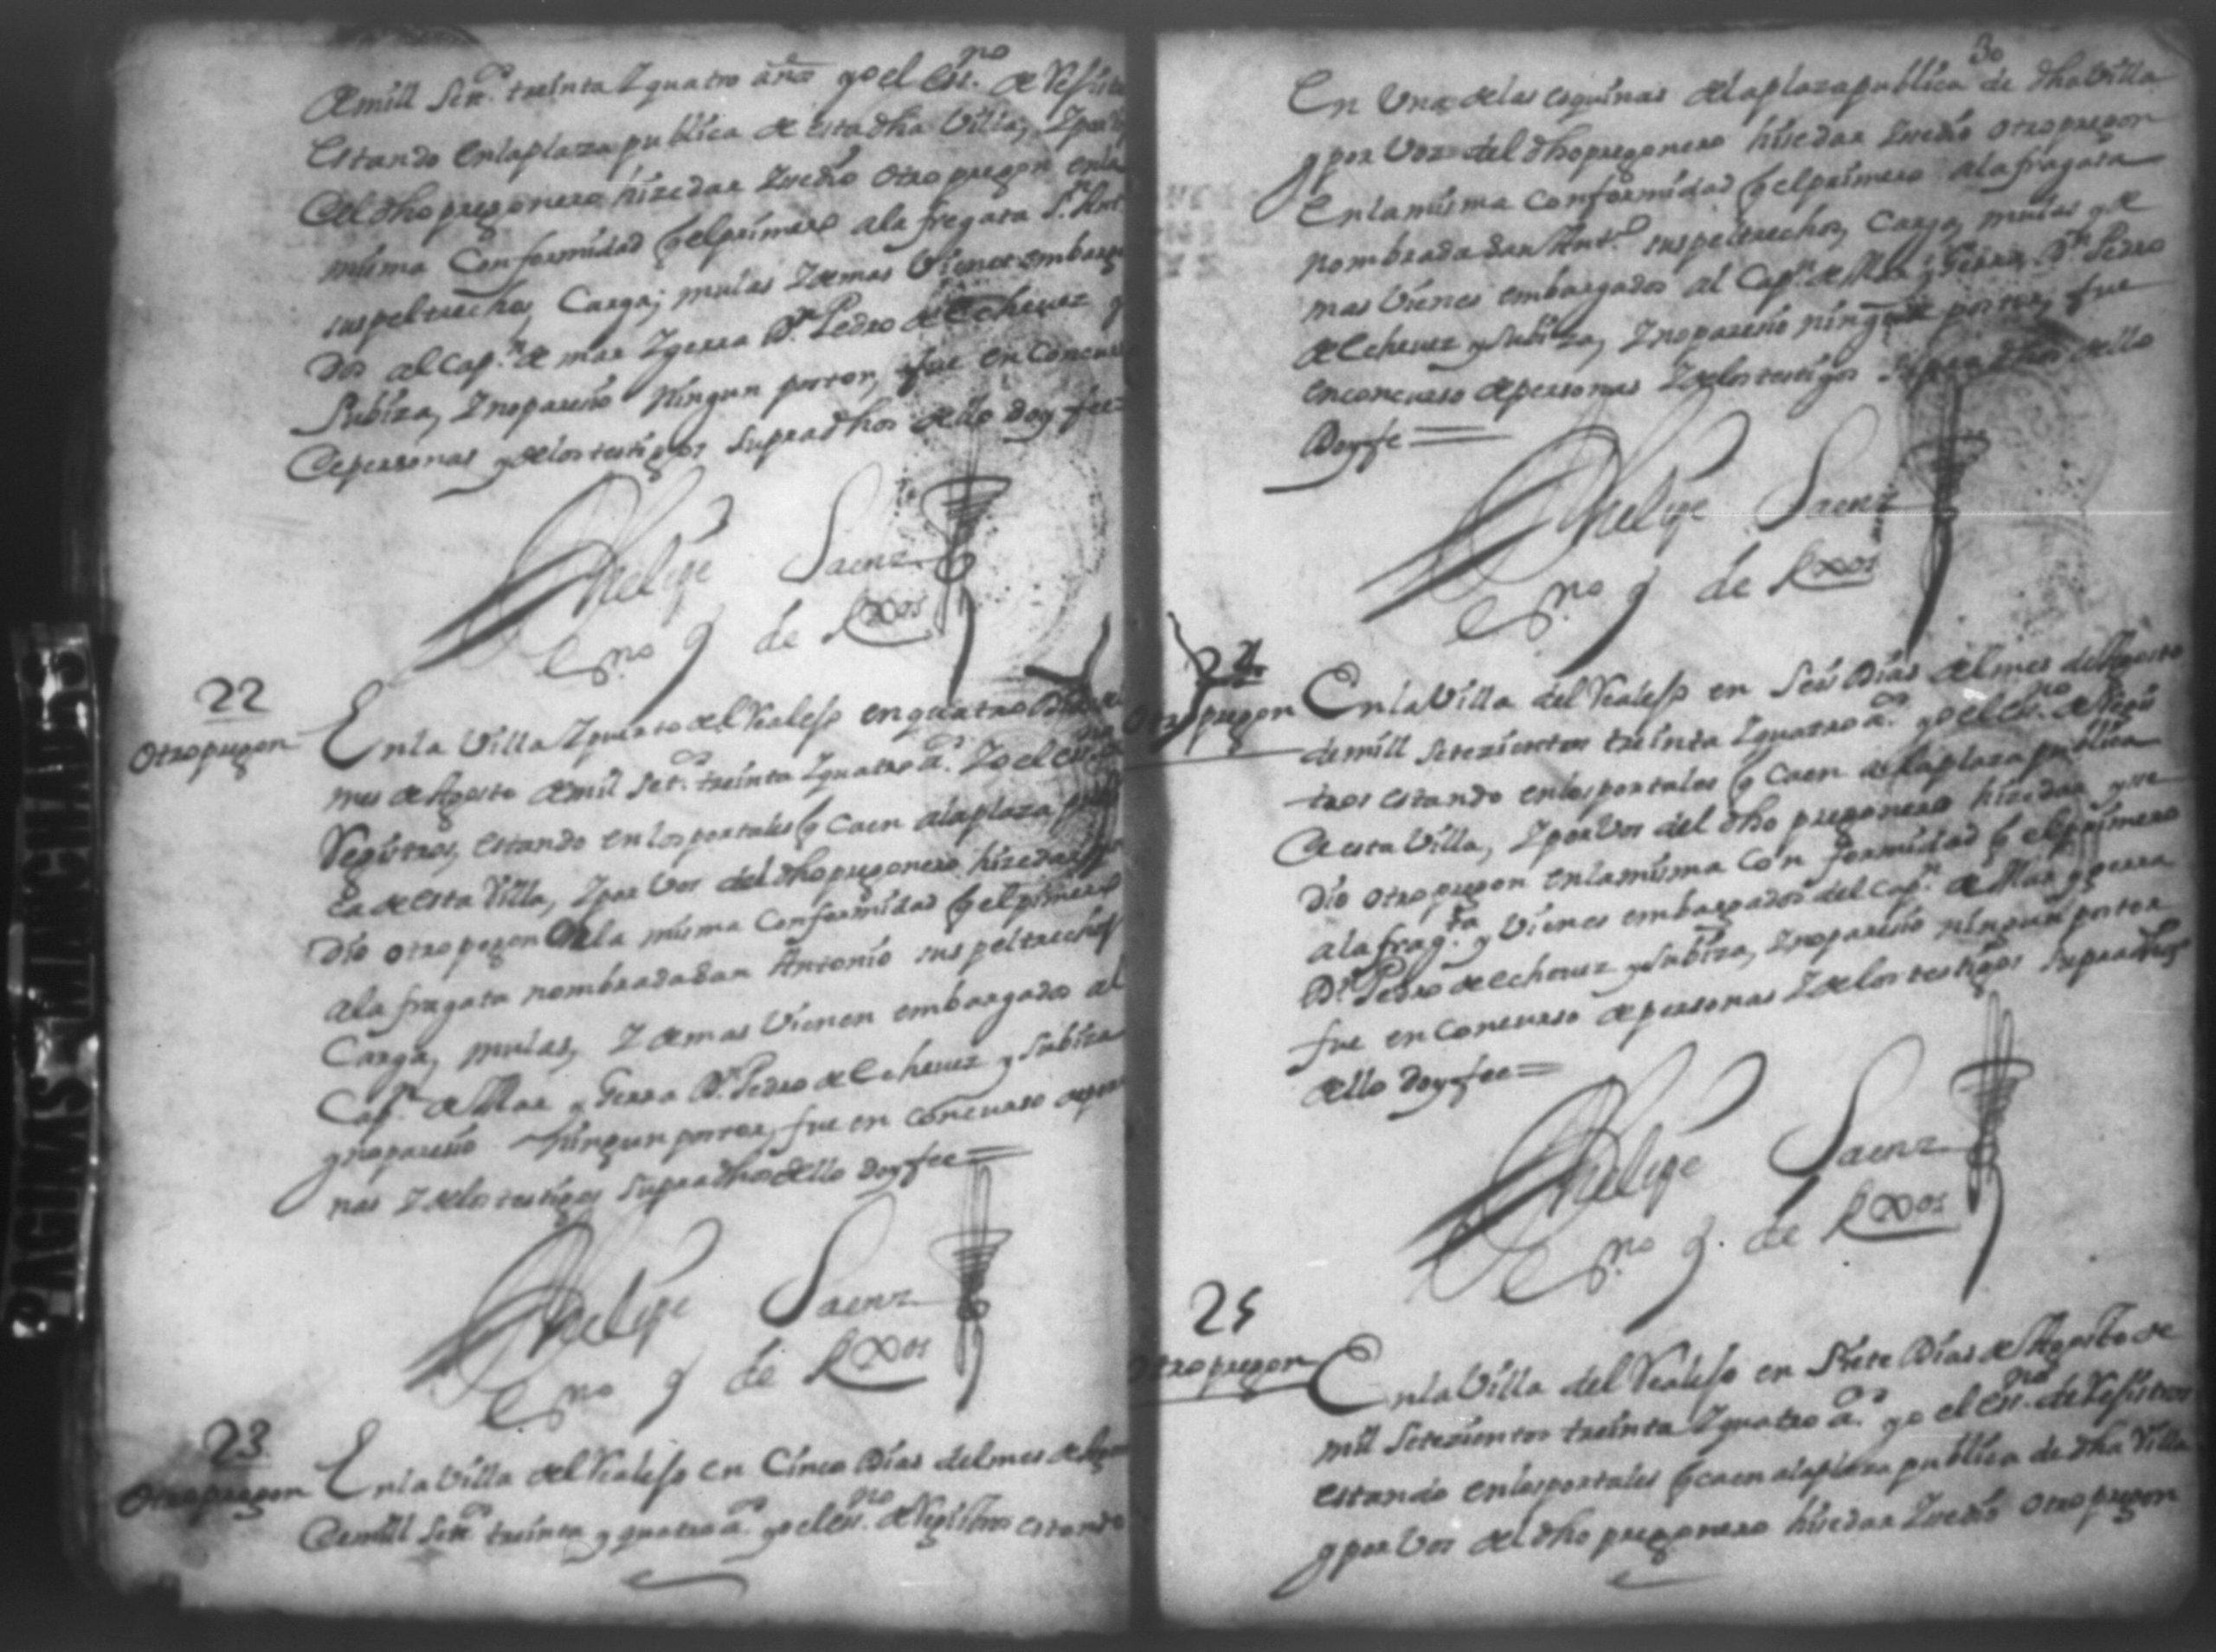 de mill Setᵒˢ. treinta Y quatro años yo el esⁿᵒ. de Regist
Estando en la plaza publica de esta dha Villa, Y por
del dho pregonero hize dar Y se dio otro pregon en la
misma Conformidad q el primero a la fregata Sⁿ. Ant
sus peltrechos, Carga, mulas Y demas Vienes embarga
dos al Capⁿ. de mar Y gerra Dⁿ. Pedro de Echeuez y
Subiza, Y no pareció Ningun postor, fue en Concurso
de personas y de los testigos supradhos de ello doy fee=
Phelipe Saenz
esⁿᵒ. q de Rxos
22
Otro pregon
En la Villa Y puerto del Realejo en quatro Dias
mes de Agosto de mil Setᵒˢ. treinta Y quatro aˢ. Yo el esⁿᵒ
Registros, estando en los portales q Caen a la plaza pub
ca de esta Villa, Y por Vos del dho pregonero hize dar
dio otro pregon En la misma Conformidad q el primero
a la fragata nombrada San Antonio sus peltrechos
Carga, mulas, Y demas Vienen embargados al
Capⁿ. de Mar y Gerra Dⁿ. Pedro de Echeuez y Subiza
y no pareció Ningun postor, fue en concurso de perso
nas Y de los testigos supradhos de ello doy fee=
Phelipe Saenz
esⁿᵒ q de Rxos
23
Otro pregon
En la Villa del Realejo en Cinco Dias del mes de Agos
de mill Setᵒˢ treinta y quatro aˢ. yo el esⁿᵒ. de Registros estando
30
En Una de las esquinas de la plaza publica de dha Villa
y por Voz del dho pregonero hise dar Y se dio otro pregon
En la misma Conformidad q el primero a la fragata
nombrada San Antᵒ sus peltrechos, Carga, mulas y de
mas Vienes embargados al Capⁿ. de Mar y Gerra Dⁿ. Pedro
de Echeuez y Subiza, Y no pareció ningun postor, fue
en concurso de personas Y de los testigos supra dhos de ello
Doy fe=
Phelipe Saenz
esⁿᵒ q de Rxos
24
Otro pregon
En la Villa del Realejo en Seis Dias del mes de Agosto
de mill setezientos treinta Y quatro aˢ. yo el esⁿᵒ. de Regis
tros estando en los portales q Caen a la plaza publica
de esta Villa, Y por Vos del dho pregonero hize dar y se
dio otro pregon en la misma Conformidad q el primero
a la fragᵗᵃ. y Vienes embargados del Capⁿ. de Mar y gerra
Dⁿ. Pedro de Echeuez y Subiza, Y no pareció ningun postor
fue en Concurso de personas Y de los testigos supradhos
de ello doy fee=
Phelipe Saenz
esⁿᵒ q. de Rxos
25
Otro pregon
En la Villa del Realejo en Siete Dias de Agosto de
mil Setezientos treinta Y quatro aˢ. yo el esⁿᵒ. de Registros
estando en los portales q caen a la plaza publica de dha Villa
y por Vos del dho pregonero hise dar Y se dio otro pregon
PAGINAS MANCHADAS